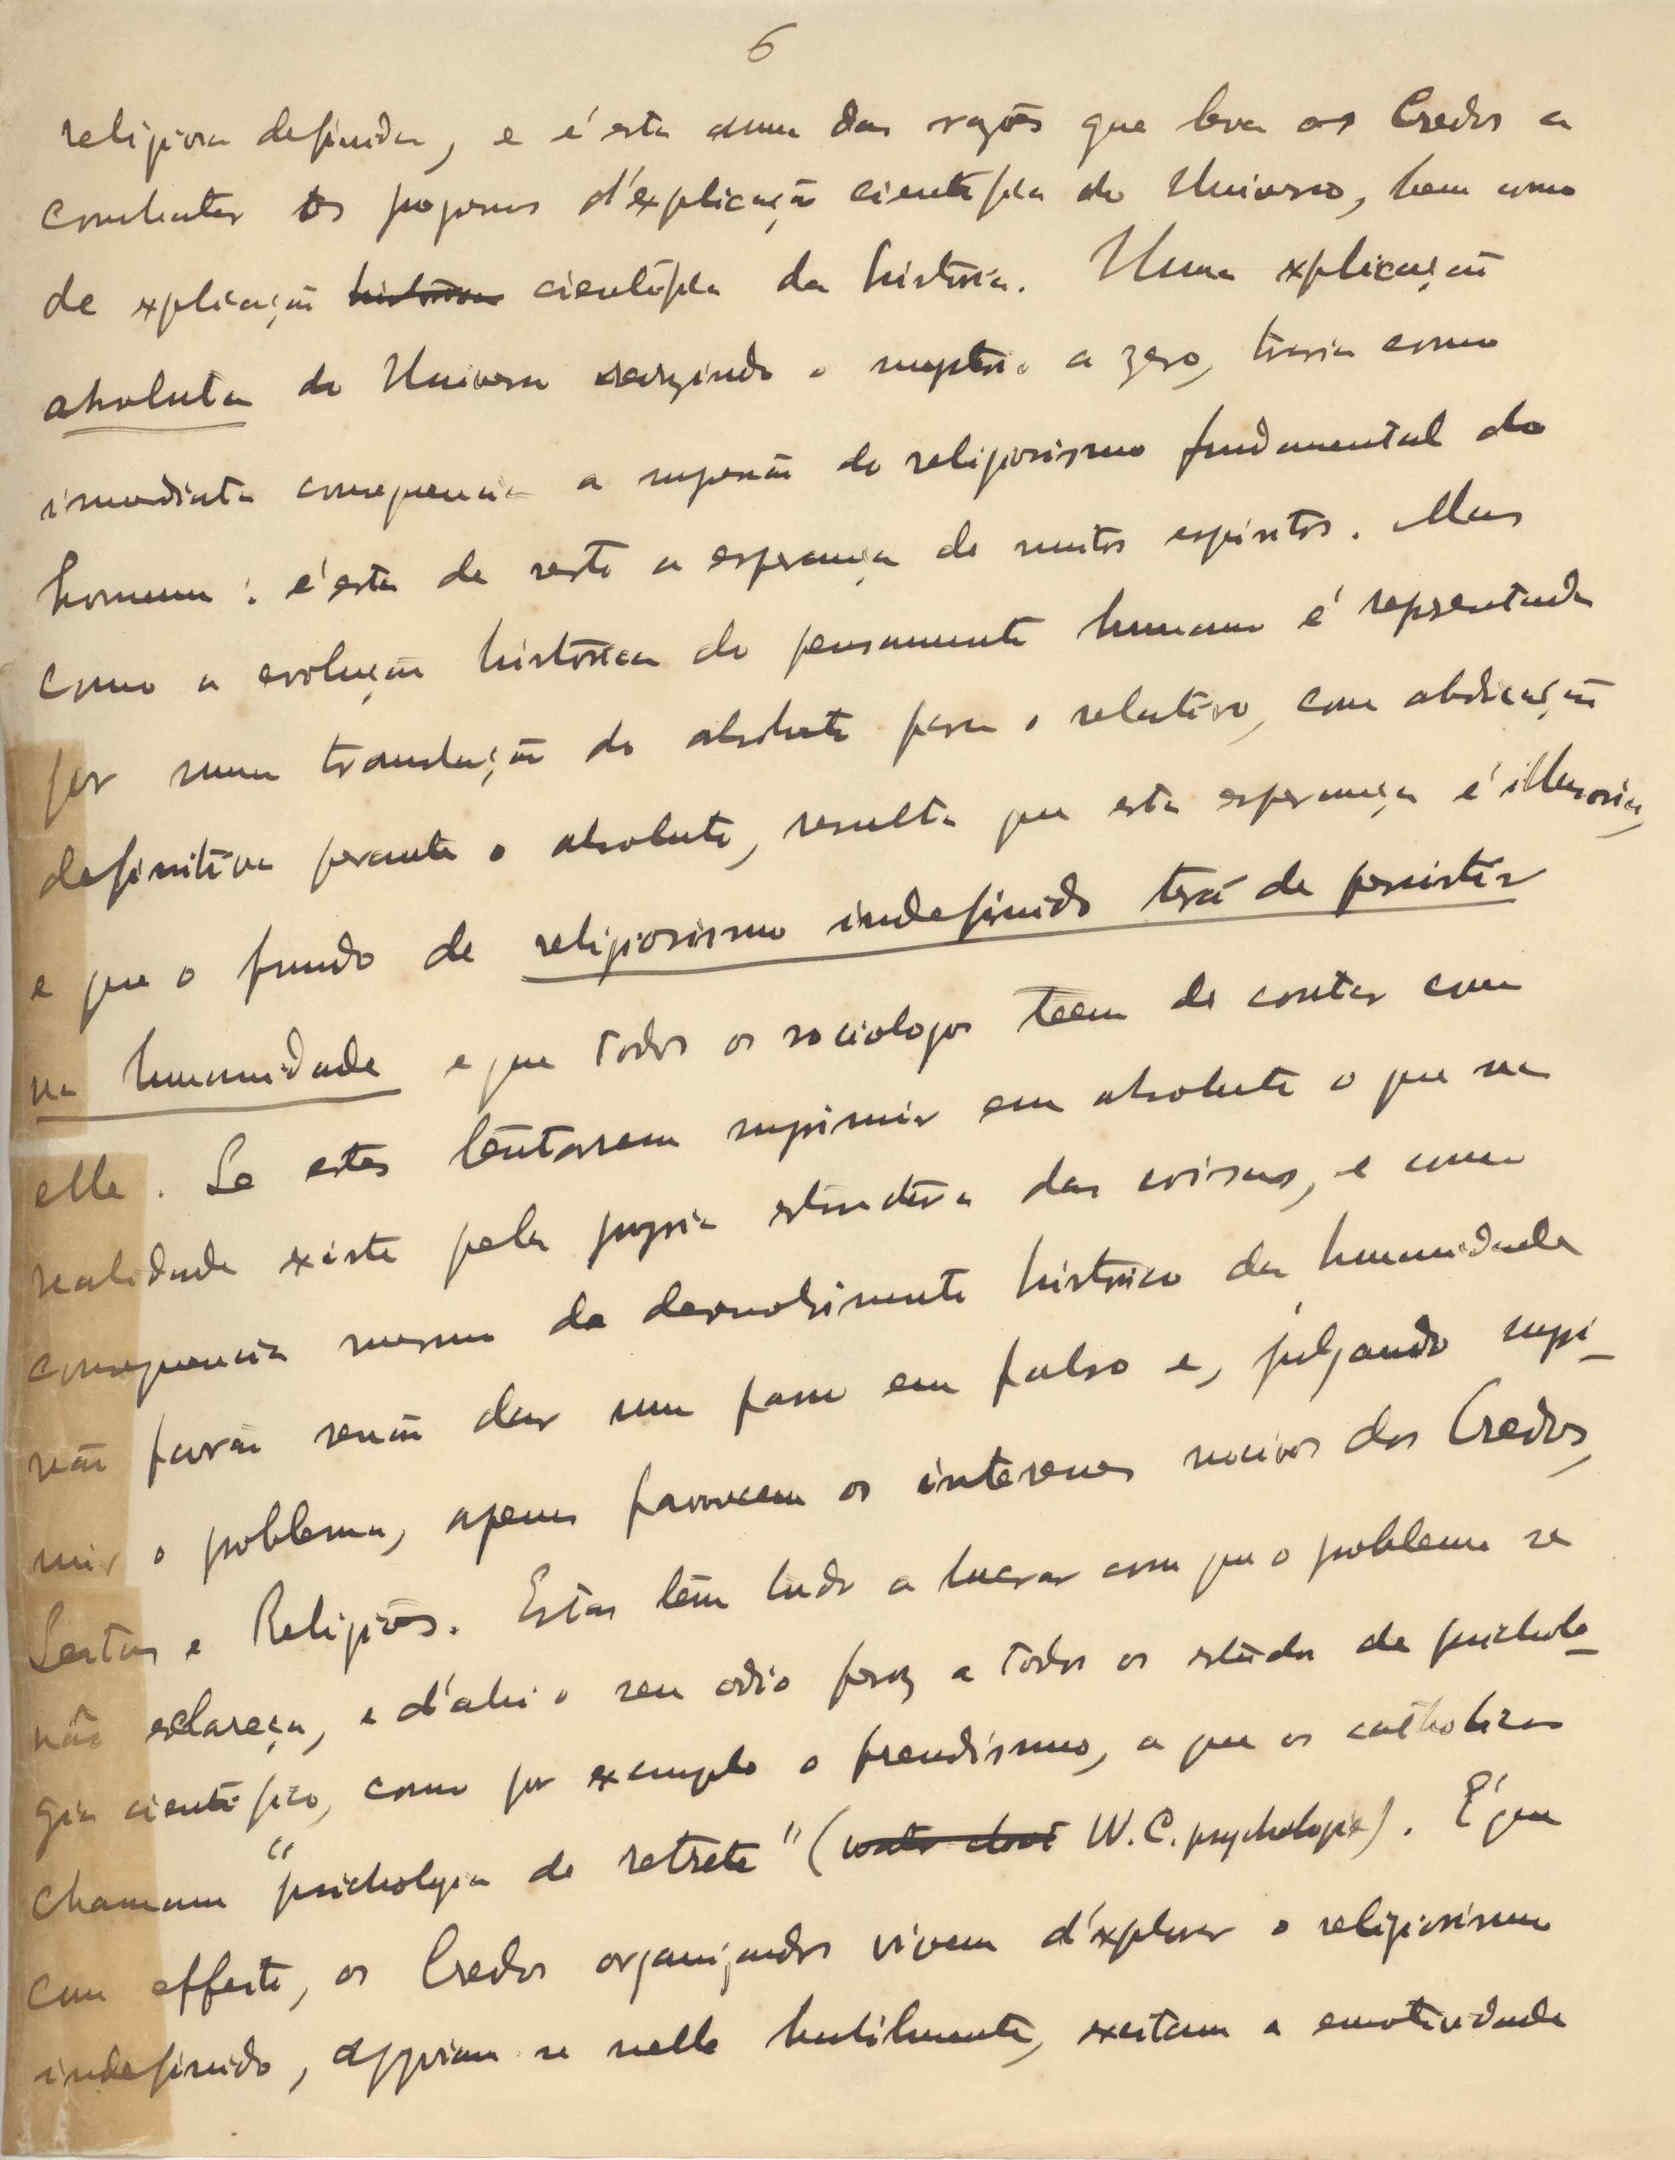 6
religiosa definida, e é esta uma das razões que leva os Credos a
combater os progressos d'explicação cientifica do Universo, bem como
de explicação historica cientifica da historia. Uma explicação
absoluta do Universo reduzindo o mysterio a zero, traria como
immediata consequencia a supressão do religiosismo fundamental do
homem: é esta de resto a esperança de muitos espiritos. Mas
como a evolução histórica do pensamento humano é representada
por uma translação do absoluto para o relativo, com abdicação
definitiva perante o absoluto, resulta que esta esperança é illusoria,
e que o fundo de religiosismo indefinido terá de persistir
na humanidade e que todos os sociologos teem de contar com
elle. Se estes tentarem suprimir em absoluto o que na
realidade existe pela propria estructura das coisas, e como
consequencia mesmo do desenvolvimento histórico da humanidade
não farão senão dar um passo em falso e, julgando supri-
mir o problema, apenas favorecem os interesses nocivos dos Credos,
Seitas e Religiões. Estas têm tudo a lucrar com que o problema se
não esclareça, e d'ahi o seu odio feroz a todos os estudos de psicholo-
gia cientifica, como por exemplo o freudismo, a que os catholicos
chamam "psichologia de retrete" (water closet W.C. psychologie). É que
com effeito, os Credos organizados vivem d'explorar o religiosismo
indefinido, appoiam-se nelle habilmente, excitam a emotividade